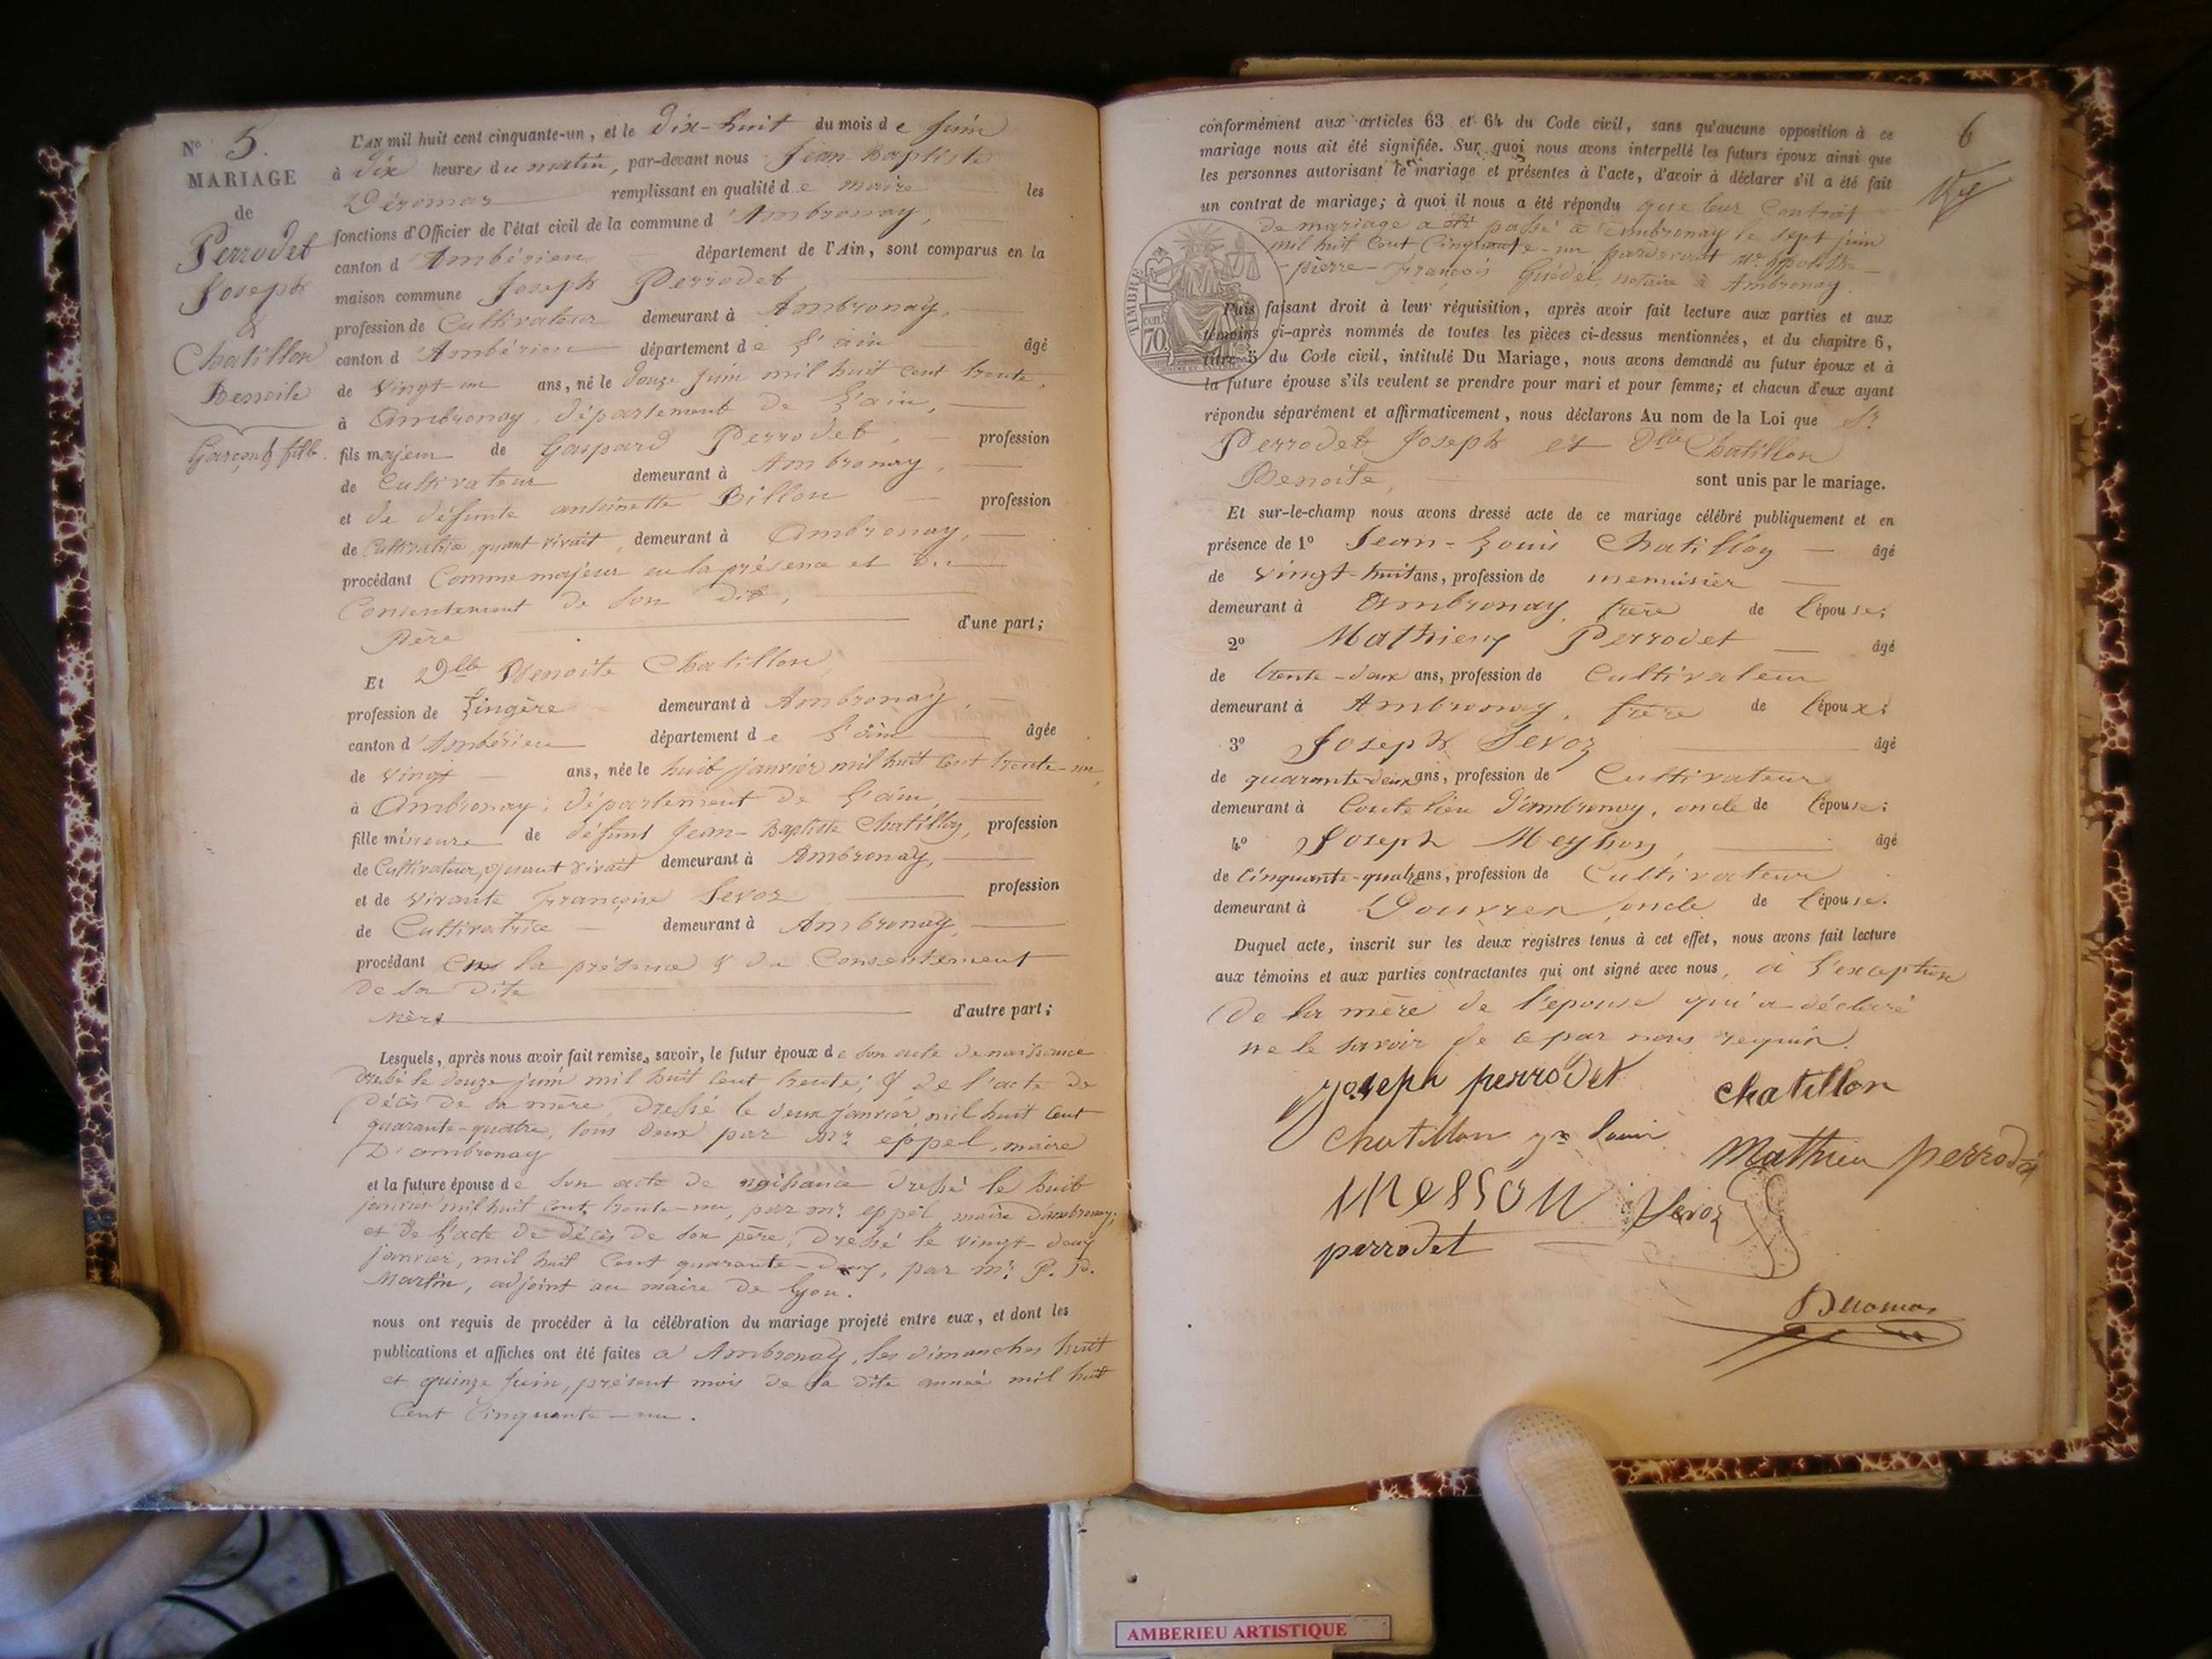 N° 5.
MARIAGE
de
Perrodet
Joseph
&
Chatillon
Benoite
Garçon & fille.
L'AN mil huit cent cinquante-un, et le Dix-huit du mois de Juin
à Dix heures du matin, par-devant nous Jean-Baptiste
Déromas remplissant en qualité de maire les
fonctions d'Officier de l'état civil de la commune d'Ambronay,
canton d'Ambérieu département de l'Ain, sont comparus en la
maison commune Joseph Perrodet
profession de Cultivateur demeurant à Ambronay,
canton d'Ambérieu département de L'ain âgé
de vingt-un ans, né le douze juin mil huit cent trente,
à Ambronay, département de L'ain,
fils majeur de Gaspard Perrodet, profession
de Cultivateur demeurant à Ambronay,
et de défunte antoinette Billon profession
de Cultivatrice quant vivait, demeurant à Ambronay,
procédant Comme majeur en la présence et du
Consentement de son dit,
Père d'une part;
Et Dlle Benoite Chatillon
profession de Lingère demeurant à Ambronay,
canton d'Ambérieu département de L'ain âgée
de vingt ans, née le huit janvier mil huit cent trente-un,
à Ambronay, département de L'ain,
fille mineure de défunt Jean-Baptiste Chatillon, profession
de Cultivateur, quant vivait demeurant à Ambronay,
et de vivante Françoise Sevoz profession
de Cultivatrice demeurant à Ambronay,
procédant en la présence & du Consentement
de sa dite
mère d'autre part;
Lesquels, après nous avoir fait remise, savoir, le futur époux de son acte de naissance
dressé le douze juin mil huit cent trente; & de l'acte de
décès de sa mère, dressé le deux janvier, mil huit cent
quarante-quatre, tous deux par Mr. eppel, maire
D'ambronay
et la future épouse de son acte de naissance dressé le huit
janvier mil huit cent trente-un, par mr. eppel maire D'ambronay;
et de l'acte de décès de son père, dressé le vingt-deux
janvier, mil huit cent quarante-deux, par mr. P. D.
Martin, adjoint au maire de Lyon.
nous ont requis de procéder à la célébration du mariage projeté entre eux, et dont les
publications et affiches ont été faites a Ambronay, les dimanches huit
et quinze juin, présent mois de la dite année mil huit
Cent Cinquante-un.
6
conformément aux articles 63 et 64 du Code civil, sans qu'aucune opposition à ce
mariage nous ait été signifiée. Sur quoi nous avons interpellé les futurs époux ainsi que
les personnes autorisant le mariage et présentes à l'acte, d'avoir à déclarer s'il a été fait
un contrat de mariage; à quoi il nous a été répondu que leur Contrat
de mariage a été passé à Ambronay le sept juin
mil huit cent Cinquante-un, pardevant Me hypolitte
pierre-François Guédel, notaire à Ambronay.
TIMBRE
70
Puis faisant droit à leur réquisition, après avoir fait lecture aux parties et aux
témoins ci-après nommés de toutes les pièces ci-dessus mentionnées, et du chapitre 6,
titre 5 du Code civil, intitulé Du Mariage, nous avons demandé au futur époux et à
la future épouse s'ils veulent se prendre pour mari et pour femme; et chacun d'eux ayant
répondu séparément et affirmativement, nous déclarons Au nom de la Loi que Sr.
Perrodet Joseph et Dlle Chatillon
Benoite, sont unis par le mariage.
Et sur-le-champ nous avons dressé acte de ce mariage célébré publiquement et en
présence de 1° Jean-Louis Chatillon âgé
de vingt-huit ans, profession de menuisier
demeurant à Ambronay, frère de l'épouse;
2° Mathieu Perrodet âgé
de trente-deux ans, profession de Cultivateur
demeurant à Ambronay, frère de l'époux;
3° Joseph Sevoz âgé
de quarante-deux ans, profession de Cultivateur
demeurant à Coutelieu d'ambronay, oncle de l'épouse;
4° Joseph Meyson, âgé
de Cinquante-quatre ans, profession de Cultivateur
demeurant à Douvres, oncle de l'épouse.
Duquel acte, inscrit sur les deux registres tenus à cet effet, nous avons fait lecture
aux témoins et aux parties contractantes qui ont signé avec nous, à l'exception
de la mère de l'epouse qui a déclaré
ne le savoir de ce par nous requis.
Joseph perrodet chatillon
Chatillon jn louis Mathieu perrodet
Messon Sevoz
perrodet
Deromas
AMBERIEU ARTISTIQUE